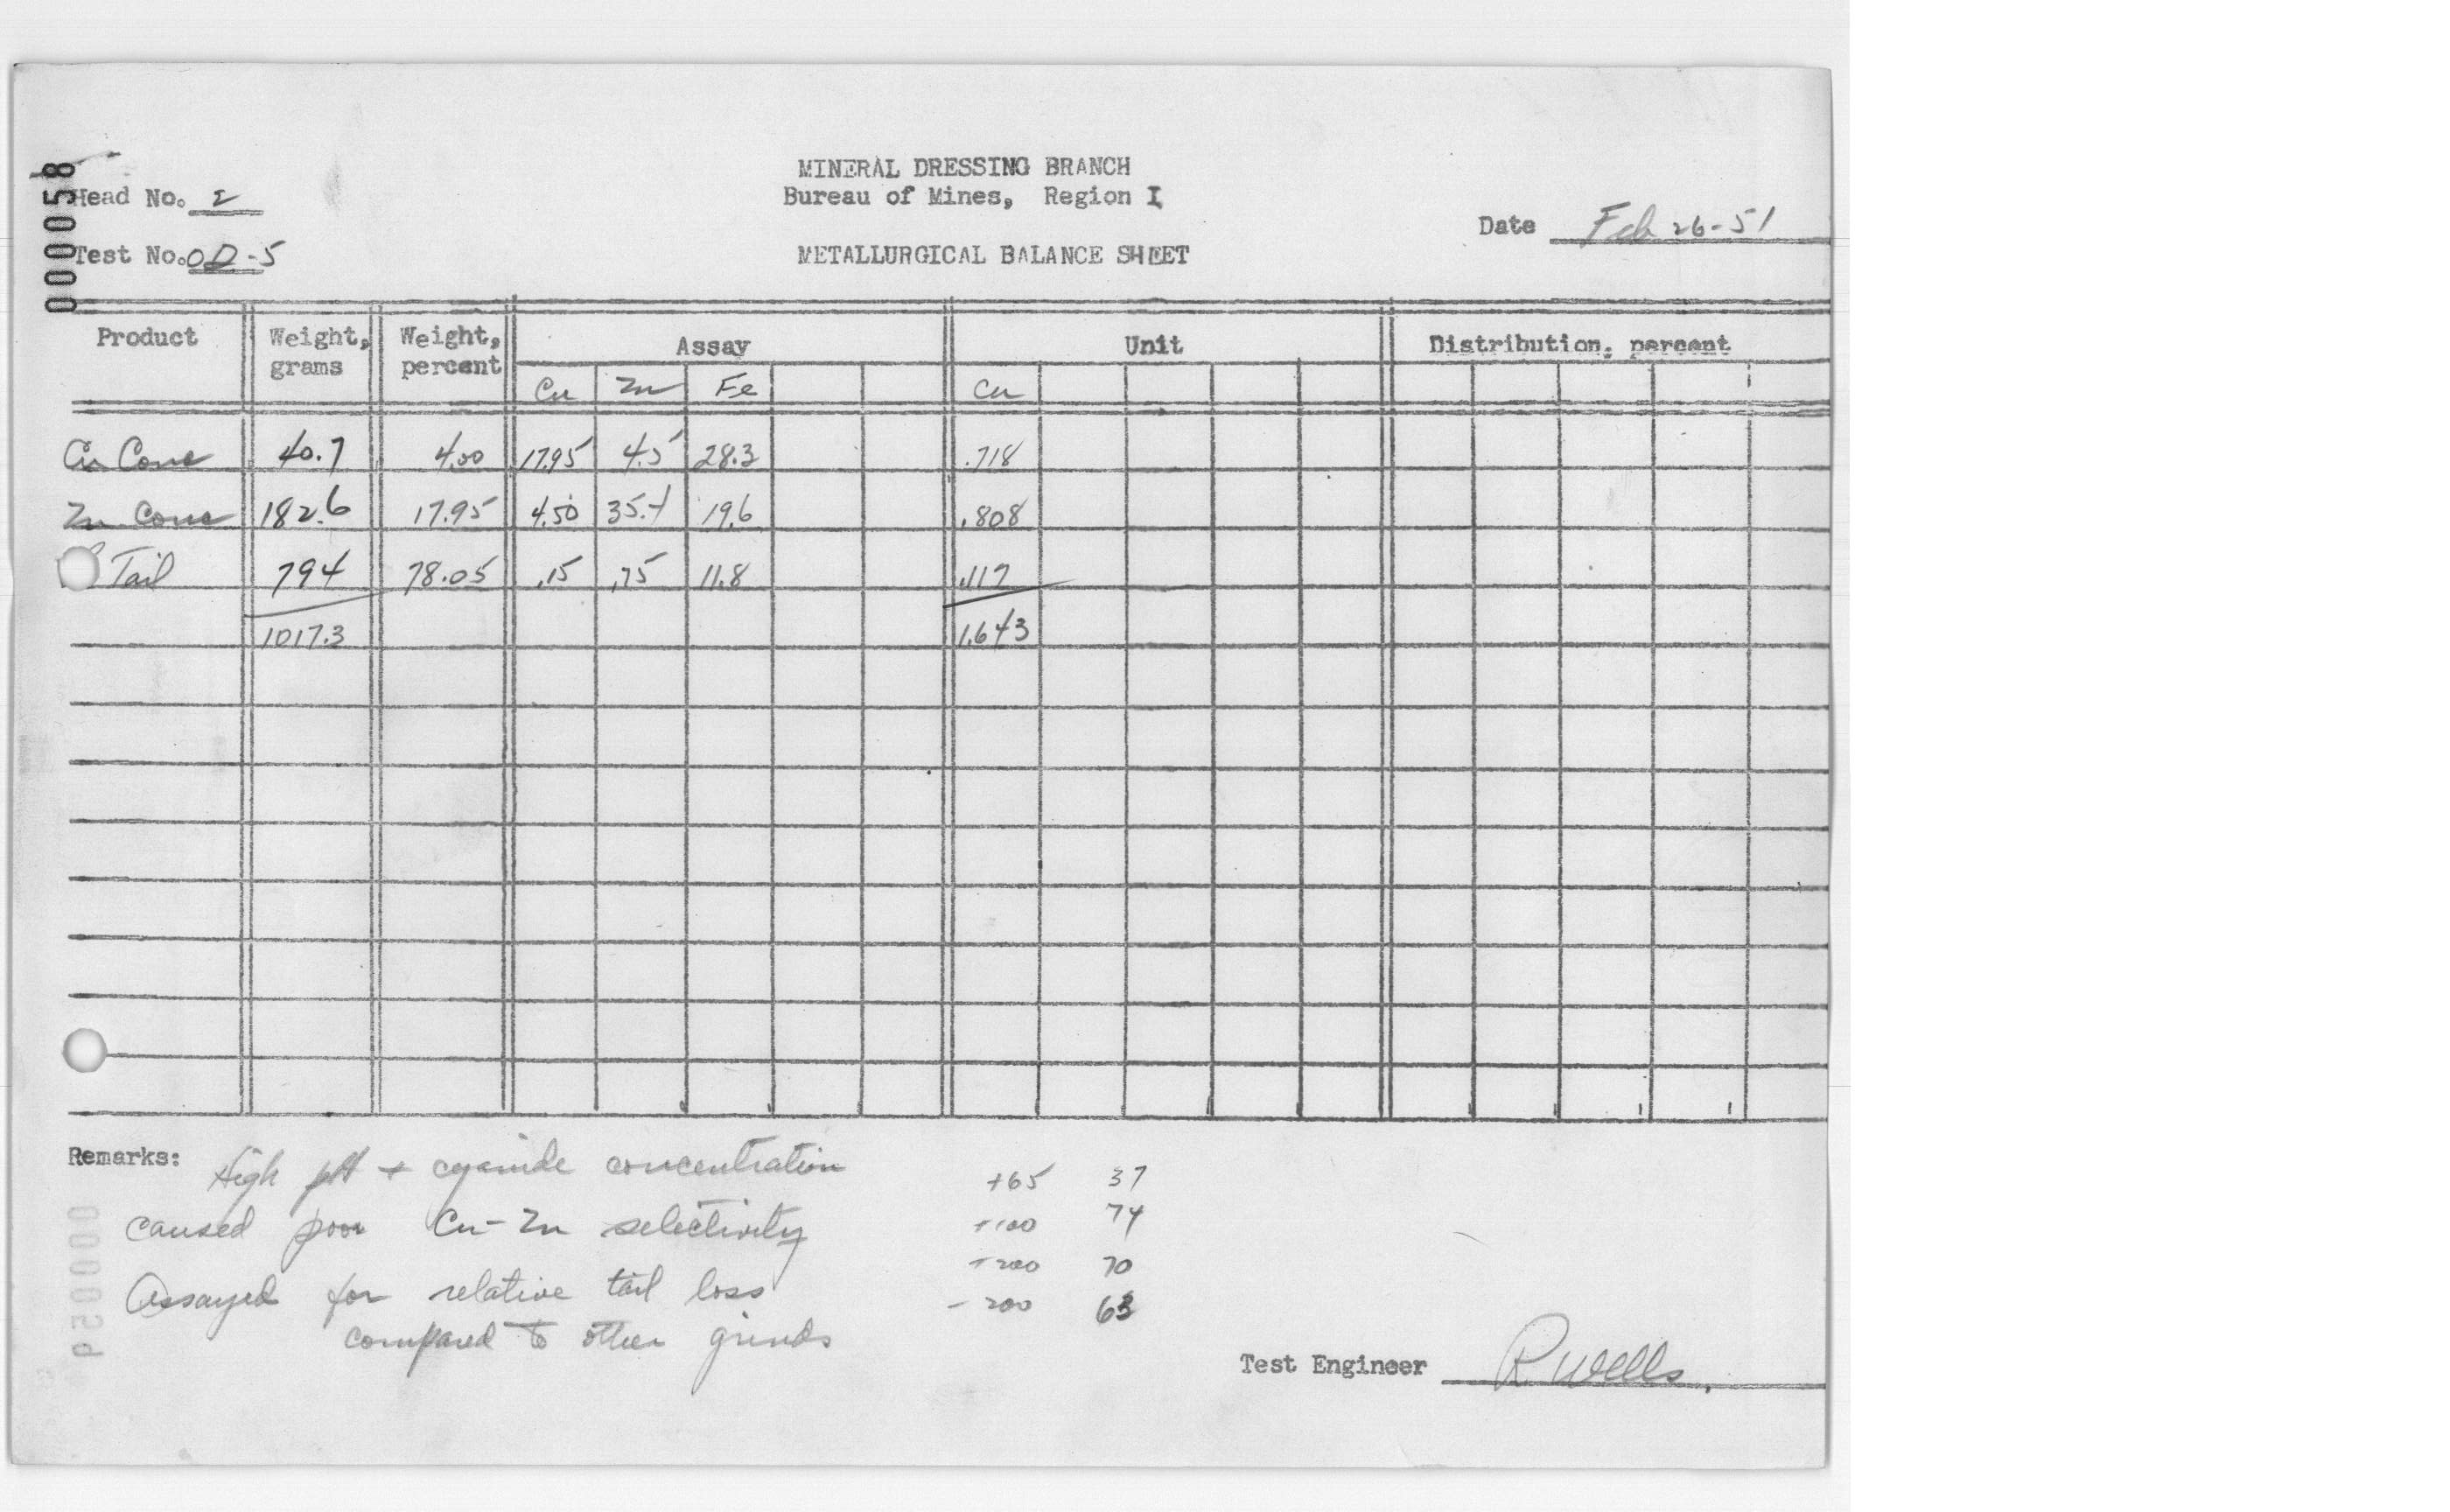 000058
MINERAL DRESSING BRANCH
Head No. 2
Bureau of Mines, Region I
Date Feb 26-51
Test No. OD-5
METALLURGICAL BALANCE SHEET
Product Weight, grams Weight, percent Assay Unit Distribution, percent
Cu Zn Fe Cu
Cu Conc 40.7 4.00 17.95 4.5 28.3 .718
Zn Conc 182.6 17.95 4.50 35.4 19.6 .808
Tail 794 78.05 .15 .75 11.8 .117
1017.3 1.643
Remarks: High pH + cyanide concentration
caused poor Cu-Zn selectivity
Assayed for relative tail loss
compared to other grinds
+65 37
+100 74
+200 70
-200 63
Test Engineer R. Wells.